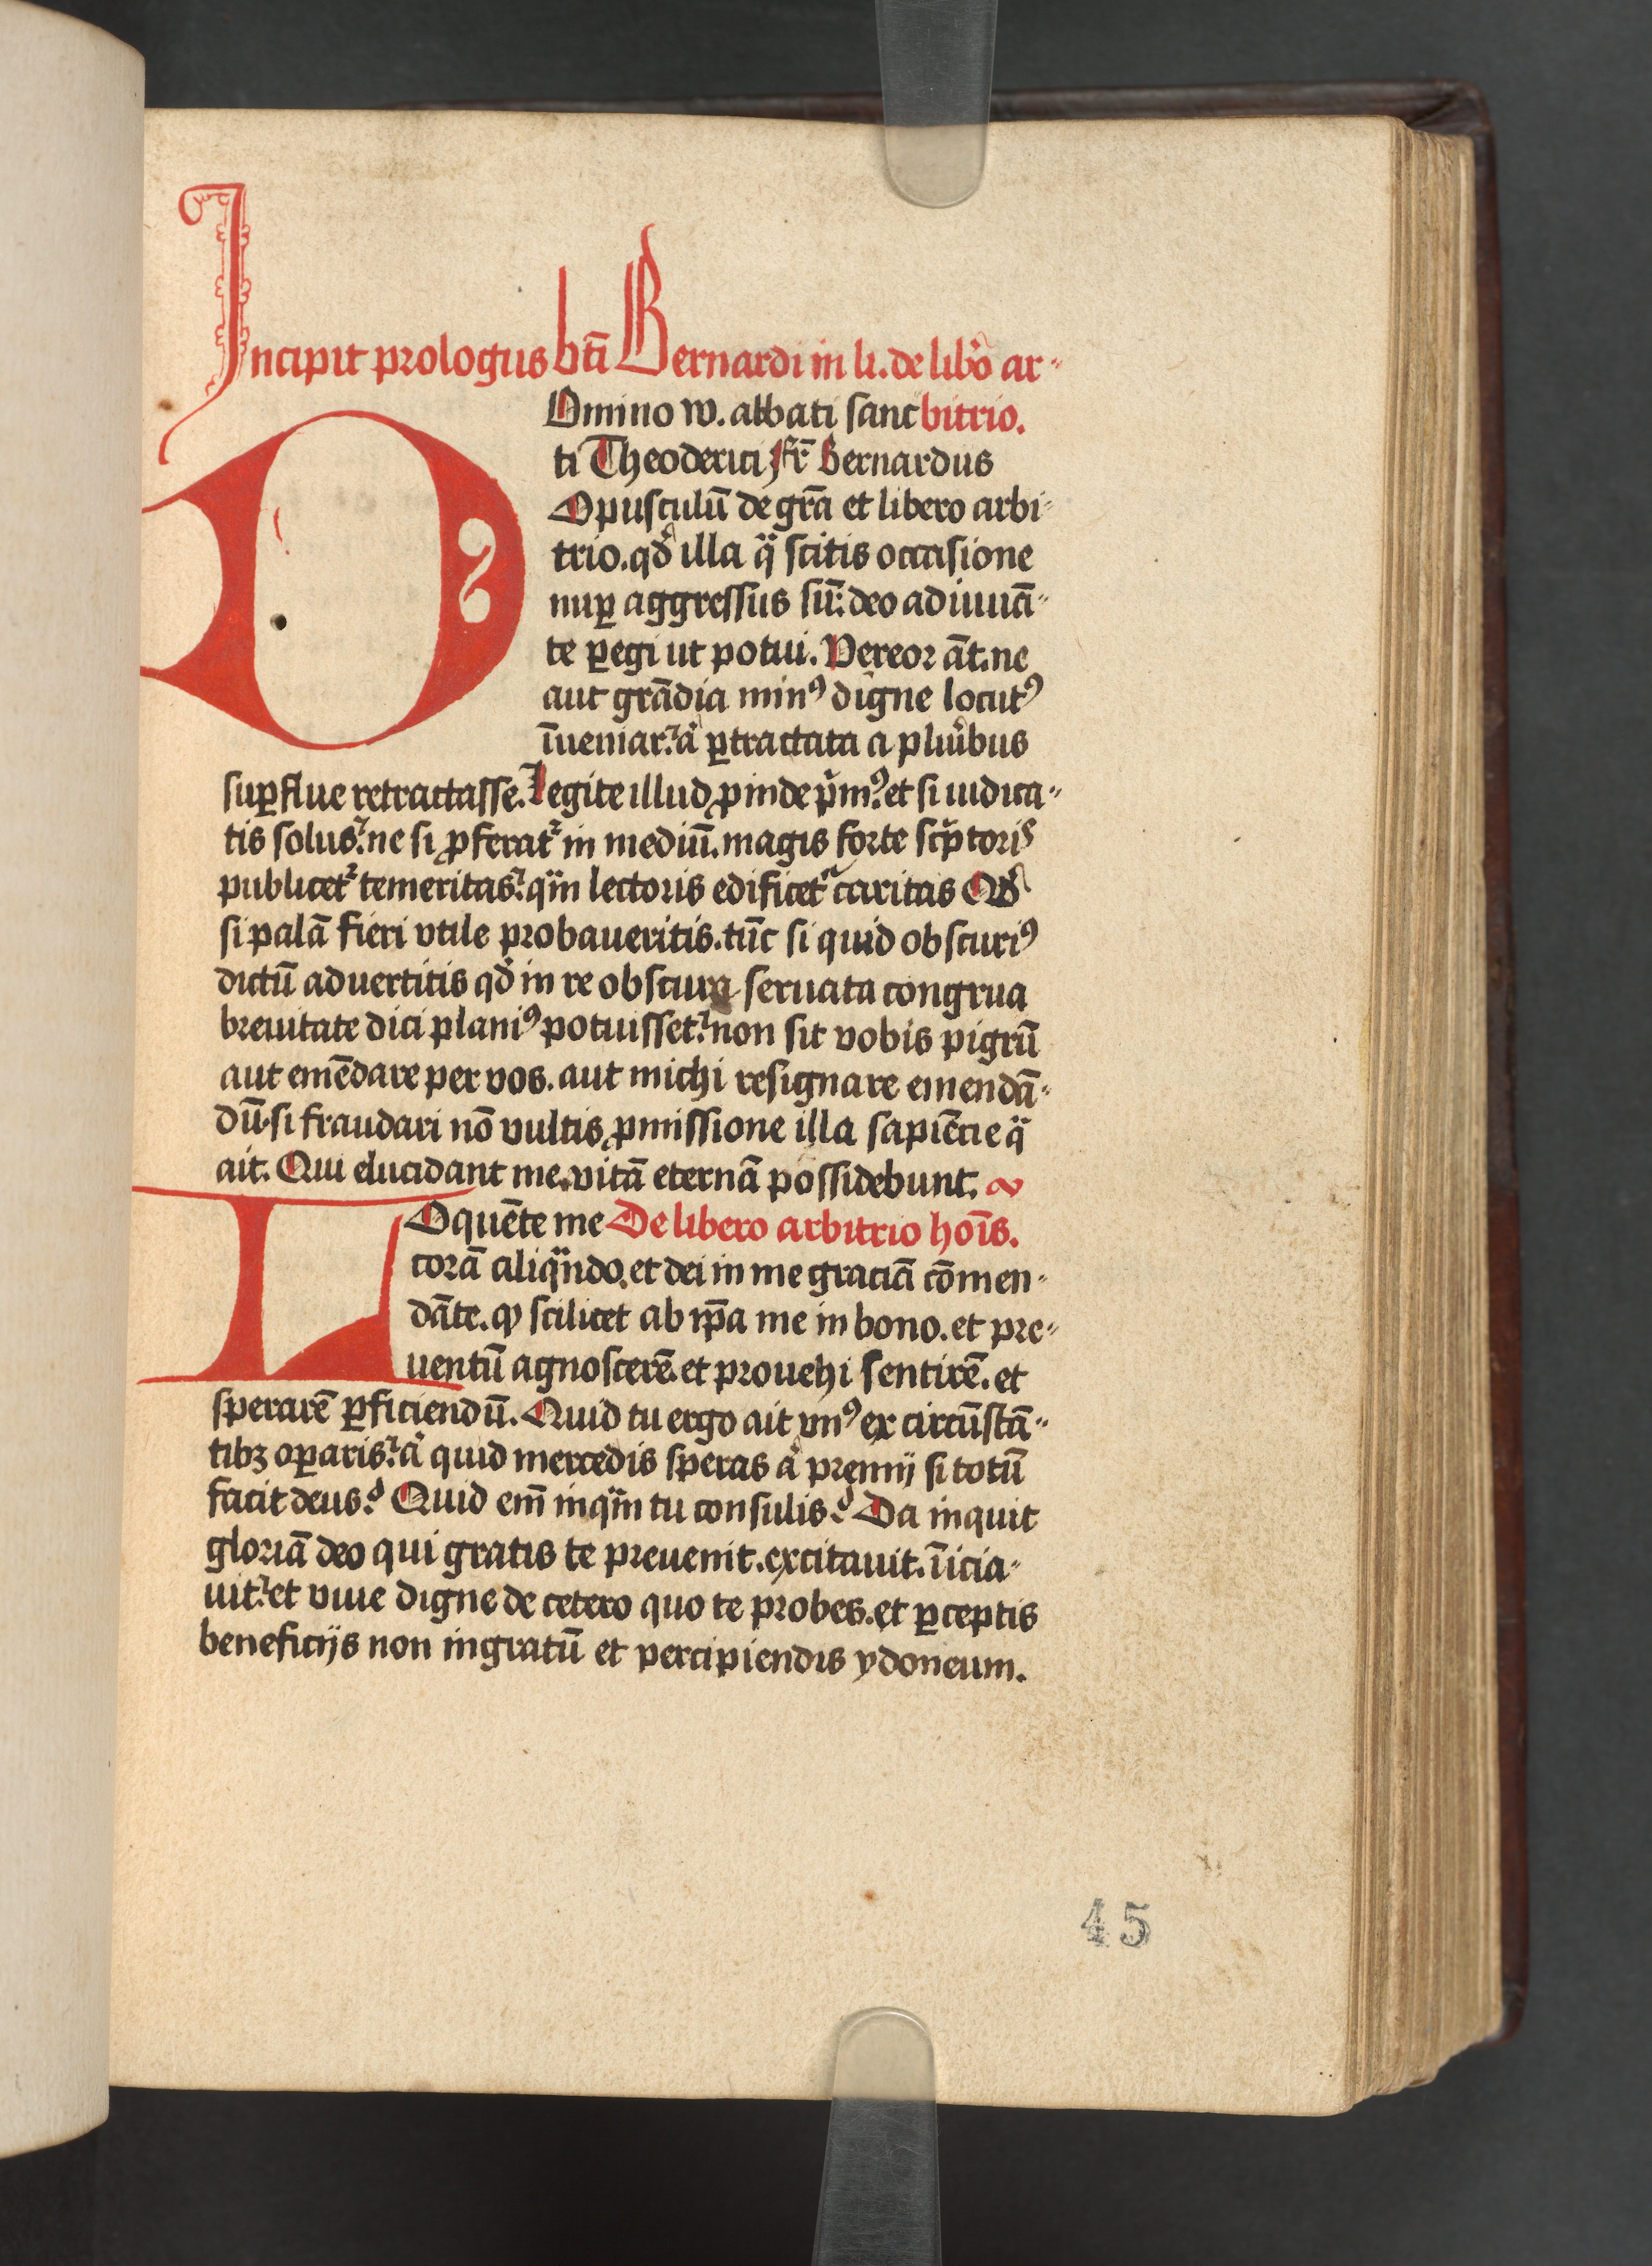 Incipit prologus bti̅ Bernardi in li. de libͦo ar-
DOmino w. abbati sanc bitrio.
ti Theoderici fr̅ Bernardus
Opusculū de gr̅a et libero arbi-
trio. qd̛ illa qͣ scitis occasione
nuꝑ aggressus sū: deo adiuuā-
te ꝑegi ut potui. Vereor āt. ne
aut grādia minꝰ digne locutꝰ
īueniar: aͭ ꝑtractata a pluͥbus
suꝑflue retractasse. Legite illud ꝓinde pͥmꝰ: et si iudica-
tis solus: ne si ꝓferatᷣ in mediū. magis forte scͥptoris
publicetᷣ temeritas: qͣm lectoris edificetᷣ caritas Qd̛
si palā fieri vtile probaueritis. tūc si quid obscuriꝰ
dictū aduertitis qd̛ in re obscura seruata congrua
breuitate dici planiꝰ potuisset: non sit vobis pigrū
aut emēdare per vos. aut michi resignare emendā-
dū. si fraudari nō vultis ꝓmissione illa sapiēcie qͣ
ait. Qui elucidant me. vitā eternā possidebunt.
LOquēte me De libero arbitrio hoīs.
corā aliqͣndo. et dei in me graciā cōmen-
dāte. ꝙ scilicet ab ip̅a me in bono. et pre-
uentū agnoscerē. et prouehi sentirē. et
sperarē ꝑficiendū. Quid tu ergo ait vnꝰ ex circūstā-
tibꝫ oꝑaris: aͭ quid mercedis speras aͭ premij si totū
facit deus? Quid em̅ inqͣm tu consulis? Da inquit
gloriā deo qui gratis te preuenit. excitauit. īicia-
uit: et viue digne de cetero quo te probes. et ꝑceptis
beneficijs non ingratū et percipiendis ydoneum.
45